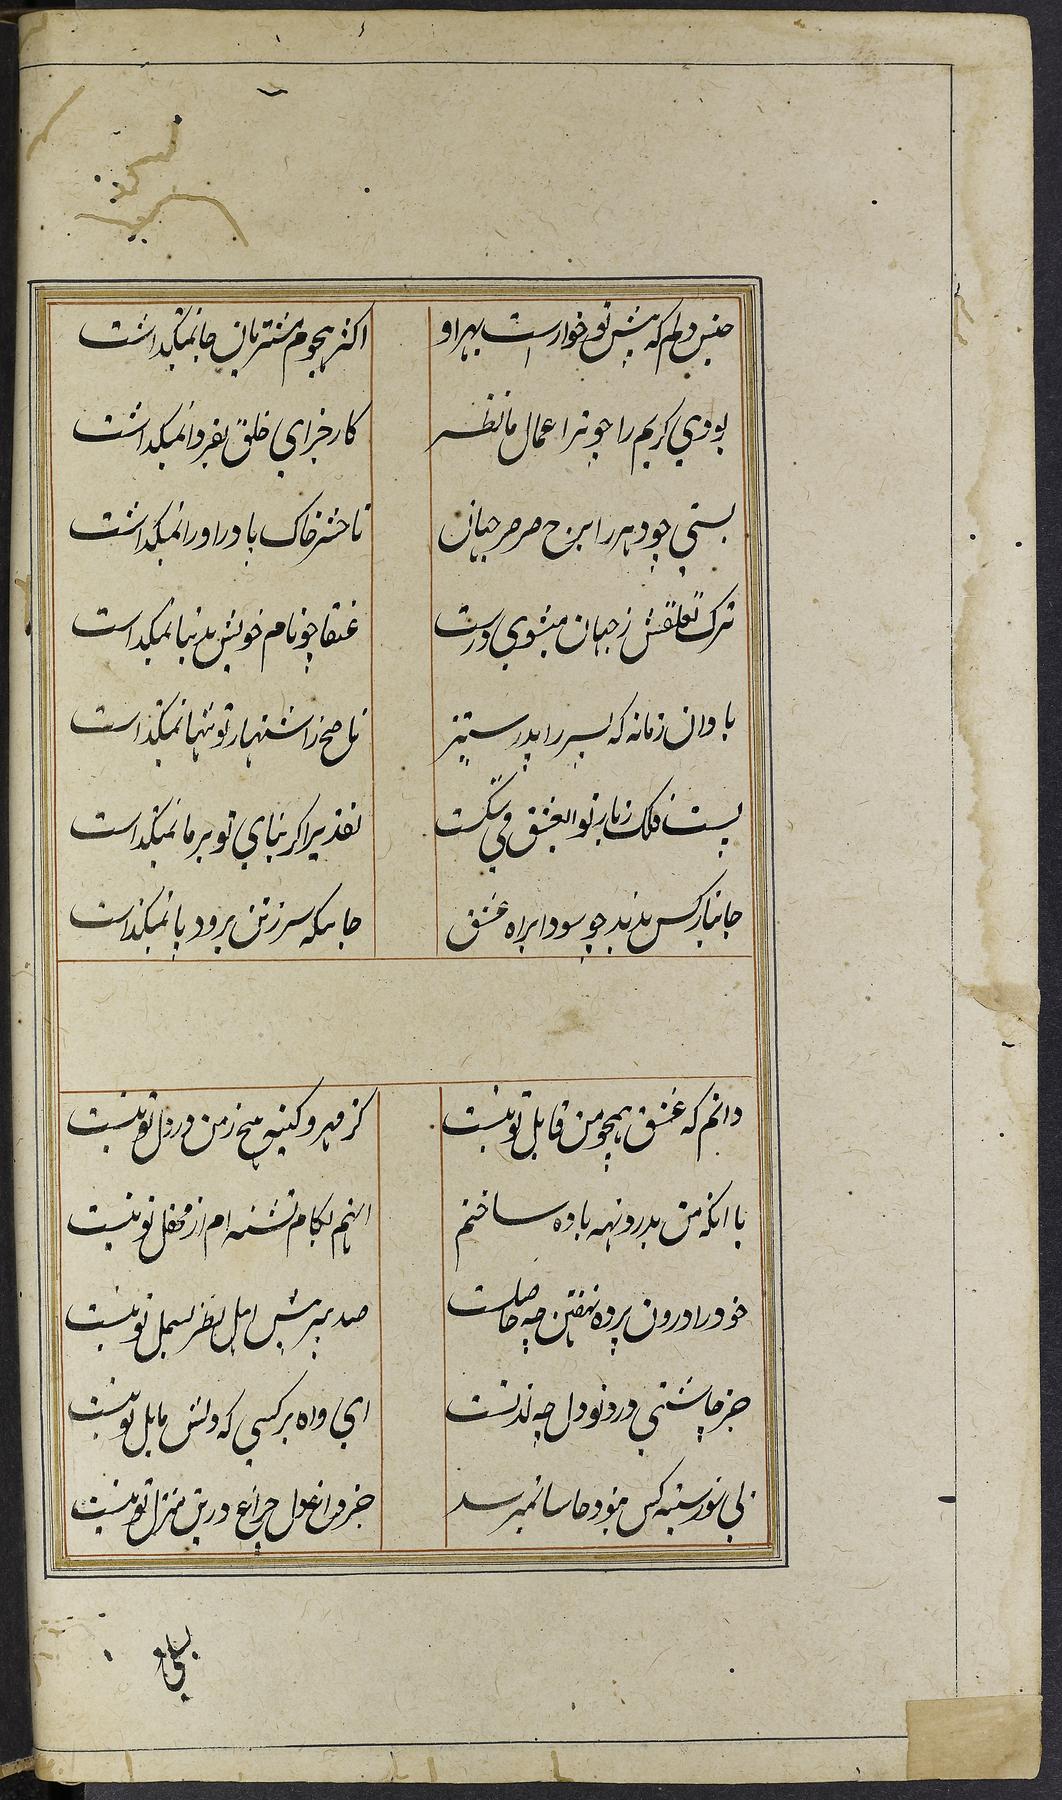 جنس دلم که پیش تو خوارست بهر او
اکثر هجوم مشتریان جا نمیگذاشت
بودی کریم را چو ترا اعمال ما نظر
کار جزای خلق بفردا نمیگذاشت
بستی چو دهر را صرصر جهان
تا حشر خاک باد را نمیگذاشت
ترک تعلقش ز جهان میشوی درست
عنقا چو نام خویش بدنیا نمیگذاشت
با وان زمانه که پسر را پدر ستیز
ناصح ز اشتهار تو تنها نمیگذاشت
فلک ز بار تو العشق
تقدیر اگر بنای تو بر ما نمیگذاشت
جانباز کس ندید چو سودا براه عشق
جاییکه سر ز تن برود پا نمیگذاشت
دانم که عشق همچو من قابل تو نیست
کز مهر و کینه هیچ ز من در دل تو نیست
با انکه من بدرد و تهه باده ساختم
اینهم بکام تشنه ام از محفل تو نیست
خود را درون پرده نهفتن چه حاصلست
صد پیش اهل نظر بسمل تو نیست
جز چاشنی درد تو دل چه لذتست
ای واه بر کسی که دلش مایل تو نیست
بی نور سینه کس بنمیرسد
جز داغ دل چراغ درین منزل تو نیست